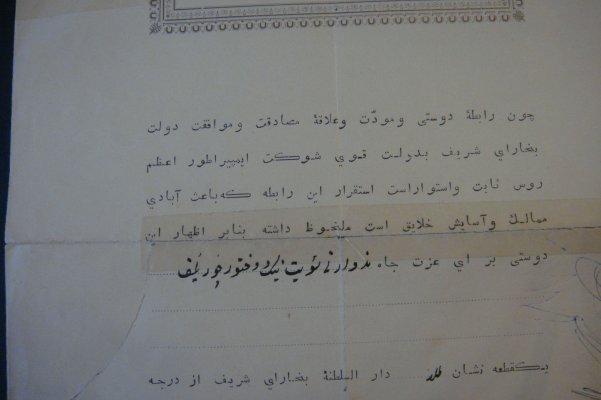 چون رابطهٔ دوستی ومودّت وعلاقهٔ مصادقت وموافقت دولت
بخاراي شریف بدولت قوي شوکت ایمپیراطور اعظم
روس ثابت واستواراست استقرار این رابطه که باعث آبادي
ممالك وآسایش خلایق است ملحوظ داشته بنابر اظهار این
دوستی بر اي عزت جاه
یکقطعه نشان طلا دار السلطنهٔ بخاراي شریف از درجه